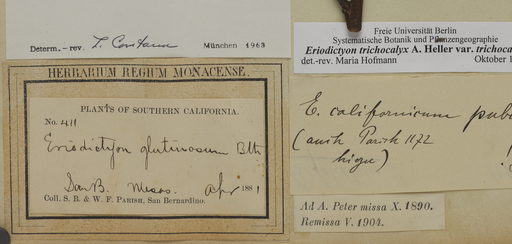 Determ.– rev. L. Constance München 1963
HERBARIUM REGIUM MONACENSE.
PLANTS OF SOUTHERN CALIFORNIA.
No. 411
Eriodictyon glutinosum Bth
San B. Mesas. Apr 1881
Coll. S. B. & W. F. PARISH, San Bernardino.
Freie Universität Berlin
Systematische Botanik und Pflanzengeographie
Eriodictyon trichocalyx A. Heller var. trichoca
det.-rev. Maria Hofmann Oktober 1
E. californicum pube
(auch Parish 1172
hierzu)
Ad A. Peter missa X. 1890.
Remissa V. 1904.